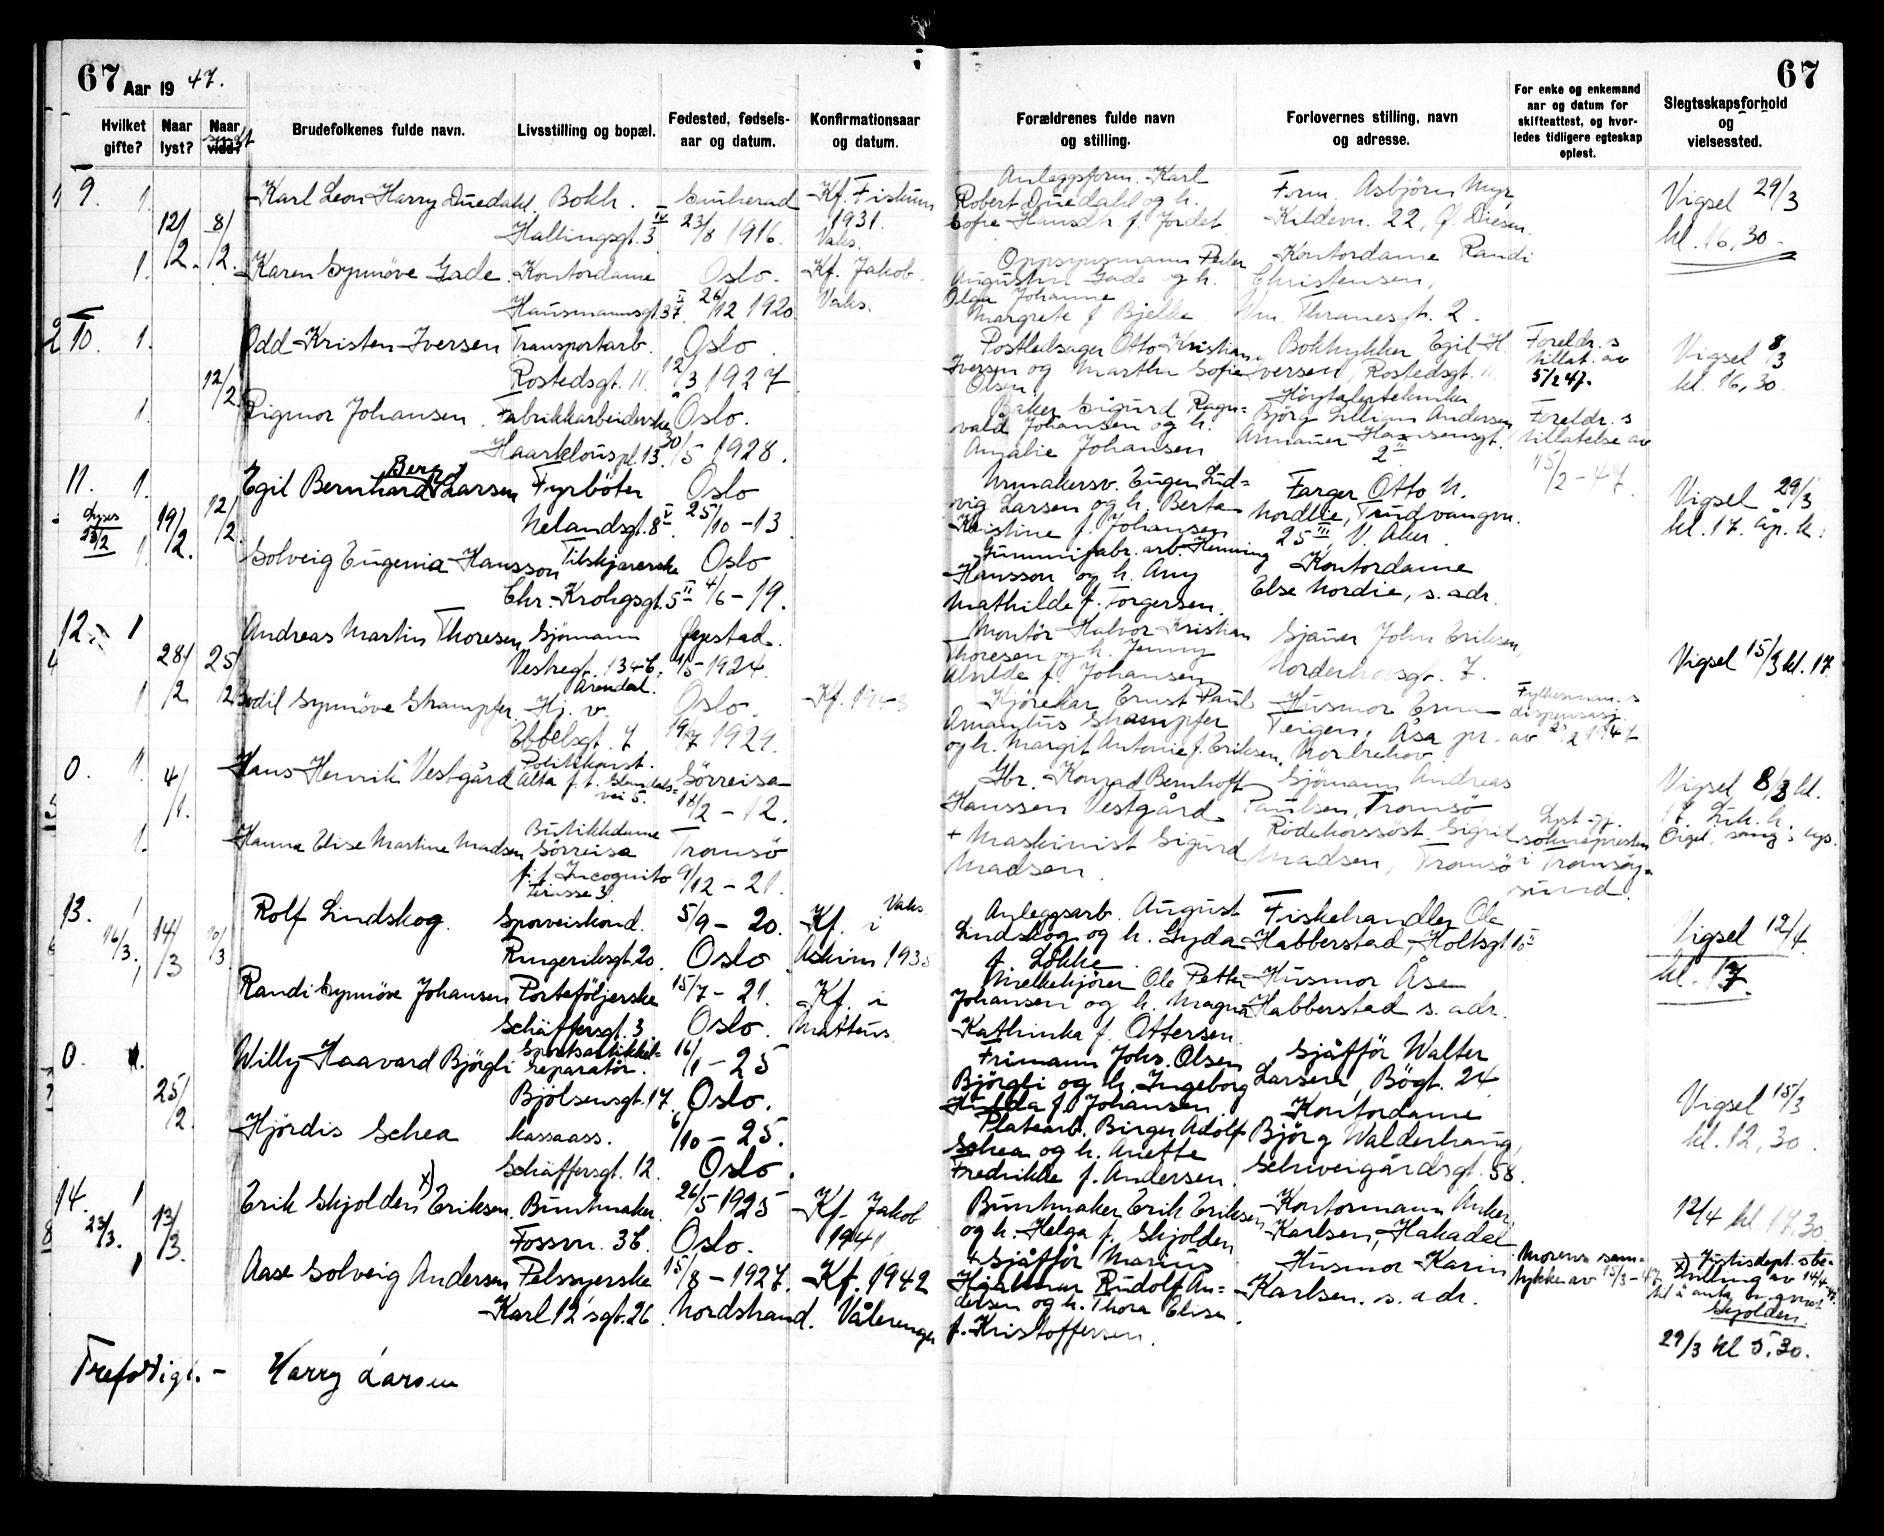 67 Aar 1947.
67
Hvilket gifte?
Naar lyst?
Naar vidd?
Brudefolkenes fulde navn.
Livsstilling og bopæl.
Fødested, fødsels-aar og datum.
Konfirmationsaar og datum.
Forældrenes fulde navn og stilling.
Forlovernes stilling, navn og adresse.
For enke og enkemand aar og datum for skifteattest, og hvorledes tidligere egteskap opløst.
Slegtsskapsforhold og vielsessted.
9. 1. Karl Leon Harry Duedahl. Bokh. Kf. Fiskum
Hallingsgt. 3 IV 23/8 1916. 1931. Vaks.
Anleggsform. Karl
Robert Duedahl og h.
Sofie Hansdtr f. Jordet
Form. Asbjörn Myr,
Kildevn. 22,
Vigsel 29/3
kl. 16,30.
12/2. 8/2.
1. Karen Synnöve Gade. Kontordame Oslo. Kf. Jakob
Hausmannsgt. 37 26/12 1920 Vaks.
Augustin Gade og h.
Olga Johanne
Margrete f Bjelke
Kontordame Randi
Christensen,
Wm. Thranesgt. 2.
10. 1. Odd Kristen Iversen Transportarb. Oslo.
Rostedsgt. 11. 12/3 1927
Postledsager Otto Kristian
Iversen og Martha Sofie
Olsen
Bokhykker Egil H.
Iversen, Rostedsgt. 11.
Foreldr.s
tillat. av
5/2 47.
Vigsel 8/3
kl. 16,30.
12/2
1. Rigmor Johansen. Fabrikkarbeiderske Oslo.
Haarklouspl. 13. 30/5 1928.
Baker Sigurd Ragn=
vald Johansen og h.
Amalie Johansen
Höytalertekniker
Björg Lillian Andersen
Armauer Hansensgt.
2 II
Foreldr.s
tillatelse av
15/2-47.
11. 1. Egil Bernhard Berg Larsen Fyrböter Oslo
Helandsgt. 8 V. 25/10-13
Urmakersv. Eugen Lud=
vig Larsen og h. Berta
Kristine f. Johansen
Farger Otto N.
Nordlie, Trudvangvn.
25 III V. Aker.
Vigsel 29/3
kl. 17.
Lyses
23/2
19/2. 12/2.
1. Solveig Eugenia Hansson Tilskjærerske Oslo
Chr. Krohgsgt. 5 II 4/6-19.
Gummifabr.arb. Henning
Hansson og h. Amy
Mathilde f. Torgersen.
Kontordame
Else Nordie, s. adr.
12. 1 Andreas Martin Thoresen, Sjömann Øyestad.
Vestregt. 13 1924.
Arendal.
Montör Halvor Kristian
Thoresen og h. Jenny
Alvilde f. Johansen
Sjauer John Eriksen,
Norderhovsgt. 7.
Vigsel 15/3 kl. 17
28/2 25/2
1 Bodil Synnöve Shampfer. Hj. v. Oslo.
Ebbelsgt. 4 19/7 1929.
Kjörekar Ernst Paul
Amantus Shampfer
og h. Margit Antonie f. Eriksen.
Husmor Erna
Teigen, Åsa pr.
Norderhov
Fylkesman.s
dispensasj.
0. 1. Hans Henrik Vestgård Politikonst. Sörreisa
Alta f. t. 18/2-12.
vei 5.
Gbr. Konrad Bernhoft
Hanssen Vestgård.
Sjömann Andreas
Paulsen, Tromsö
Vigsel 8/3 kl.
4/1.
1. Hanna Elise Martine Madsen Butikkdame Tromsö
Sörreisa
f. t. Incognito
terrasse 3. 9/12-21.
+ Maskinist Sigurd
Madsen.
Rödekorssöst. Sigrid
Madsen, Tromsö
Lyst gj.
sokneprestn
i Tromsöy=
sund.
Orgel, sang, lys.
13. 1 Rolf Lindskog. Sporveiskond. 5/9-20. Kf. i Vaks
Ringeriksgt. 20. Oslo Askim 1935
Anleggsarb. August
Lindskog og h. Gyda
f. Lökke.
Fiskehandler Ole
Habberstad, Holtsgt.
Vigsel 12/4
kl. 17.
16/3. 14/3
1 Randi Synnöve Johansen Porteföljerske 15/7-21. Kf. i
Schäffersgt. 3 Oslo. Matteus
Melkekjörer Ole Petter
Johansen og h. Magna
Kathinka f. Ottersen.
Husmor Åse
Habberstad s. adr.
0. Willy Haavard Björgli Sportsartikkel=
reparatör. 16/1-25
Bjölsensgt. 17. Oslo.
Frimann Johs. Olsen
Björgli og h. Ingeborg
Hulda f. Johansen.
Sjåfför Walter
Larsen, Bögt. 24
Vigsel 15/3
kl. 12,30.
25/2.
Hjördis Schea kassaass. 6/10-25.
Schäffersgt. 12. Oslo.
Platearb. Birger Adolf
Schea og h. Anette
Fredrikke f. Andersen.
Kontordame
Björg Walderhaug
Schweigårdsgt. 58.
14. 1 Erik Skjolden x) Eriksen. Buntmaker. 26/5 1925 Kf. Jakob
Fossvn. 3b. Oslo. 1941
Buntmaker Erik Eriksen
og h. Helga f. Skjolden
Kontormann Anker
Karlsen, Hakadal
12/4 kl 17,30
23/3. 13/3.
1 Aase Solveig Andersen Pelssyerske 15/8-1927. Kf. 1942
Karl 12'sgt. 26. Nordstrand. Vålerengen
+ Sjåfför Marius
Hjalmar Rudolf An=
dersen og h. Thora Elise
f. Kristoffersen.
Husmor Karin
Karlsen. s. adr.
Morens sam=
tykke av 15/3-47
x) Justisdept.s be=
villing av 14/4
Skjolden.
29/3 kl 5.30.
Trefoldigh. - Harry Larsen